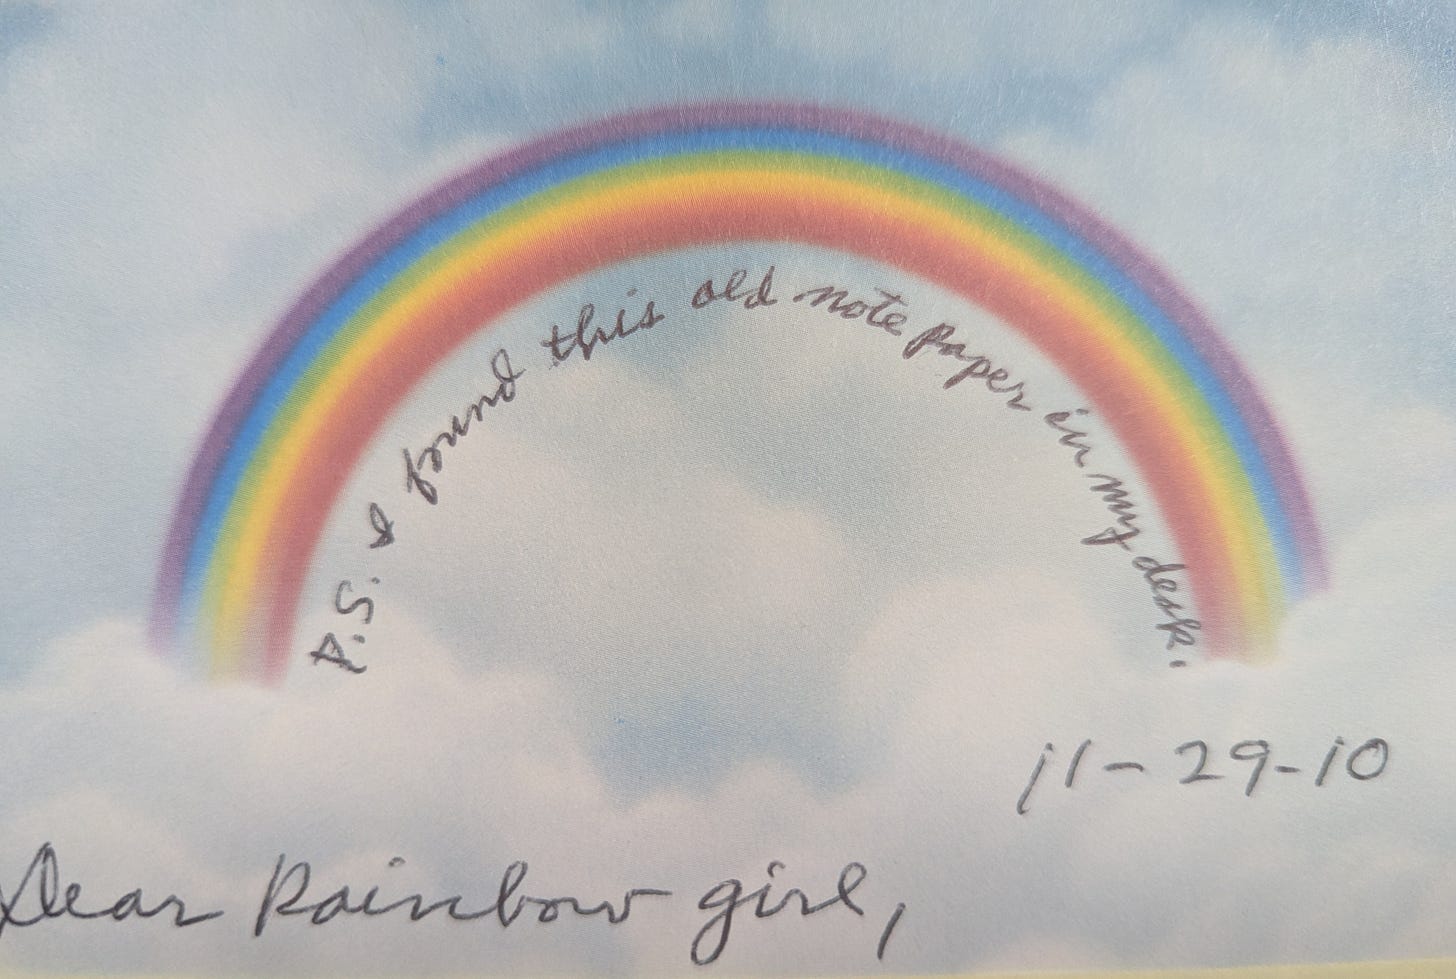 P.S. I found this old note paper in my desk.
11-29-10
Dear Rainbow girl,